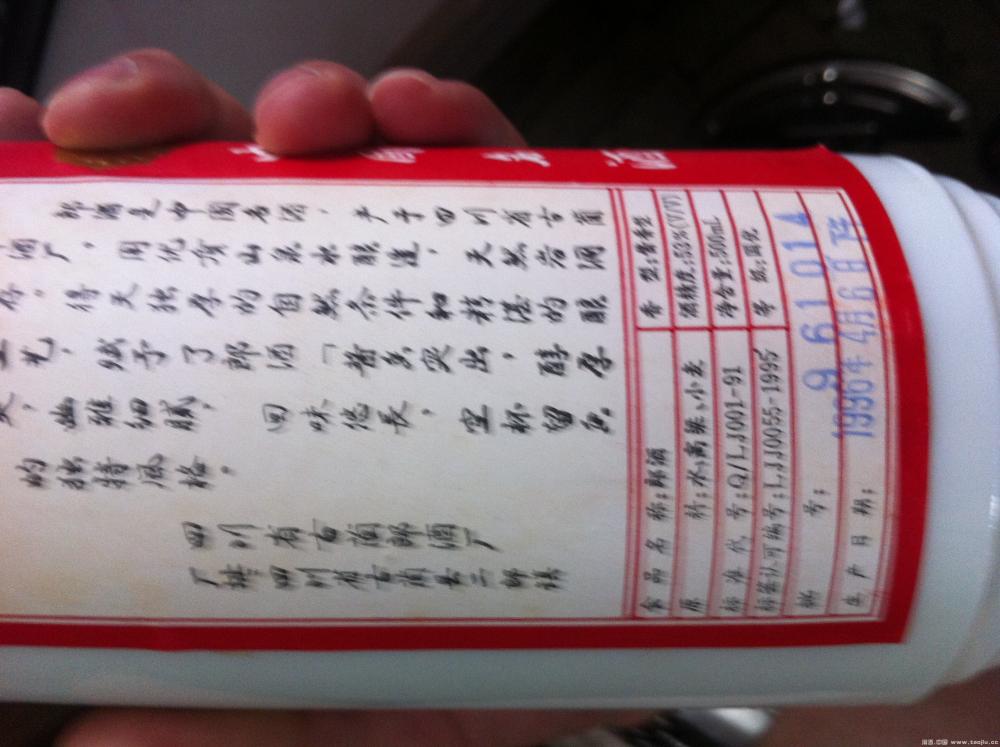 郎酒是中国名酒，产于四川省古蔺
酒厂，用优质山泉水酿造，天然岩洞
存，得天独厚的自然条件和精湛的酿
艺，赋予了郎酒「酱香突出，醇厚
爽，幽雅细腻，回味悠长，空杯留香
的独特风格。
四川省古蔺郎酒厂
厂址:四川省古蔺县二郎镇
食品名称:郎酒 香型:酱香型
原料:水、高粱、小麦 酒精度:53%(V/V)
标准代号:Q/LJ001-91 净含量:500mL
标签认可编号:LJJ0055-1995 等级:国优
号: 961014
生产日期: 1996年4月6日
酒
www.taojiu.cc